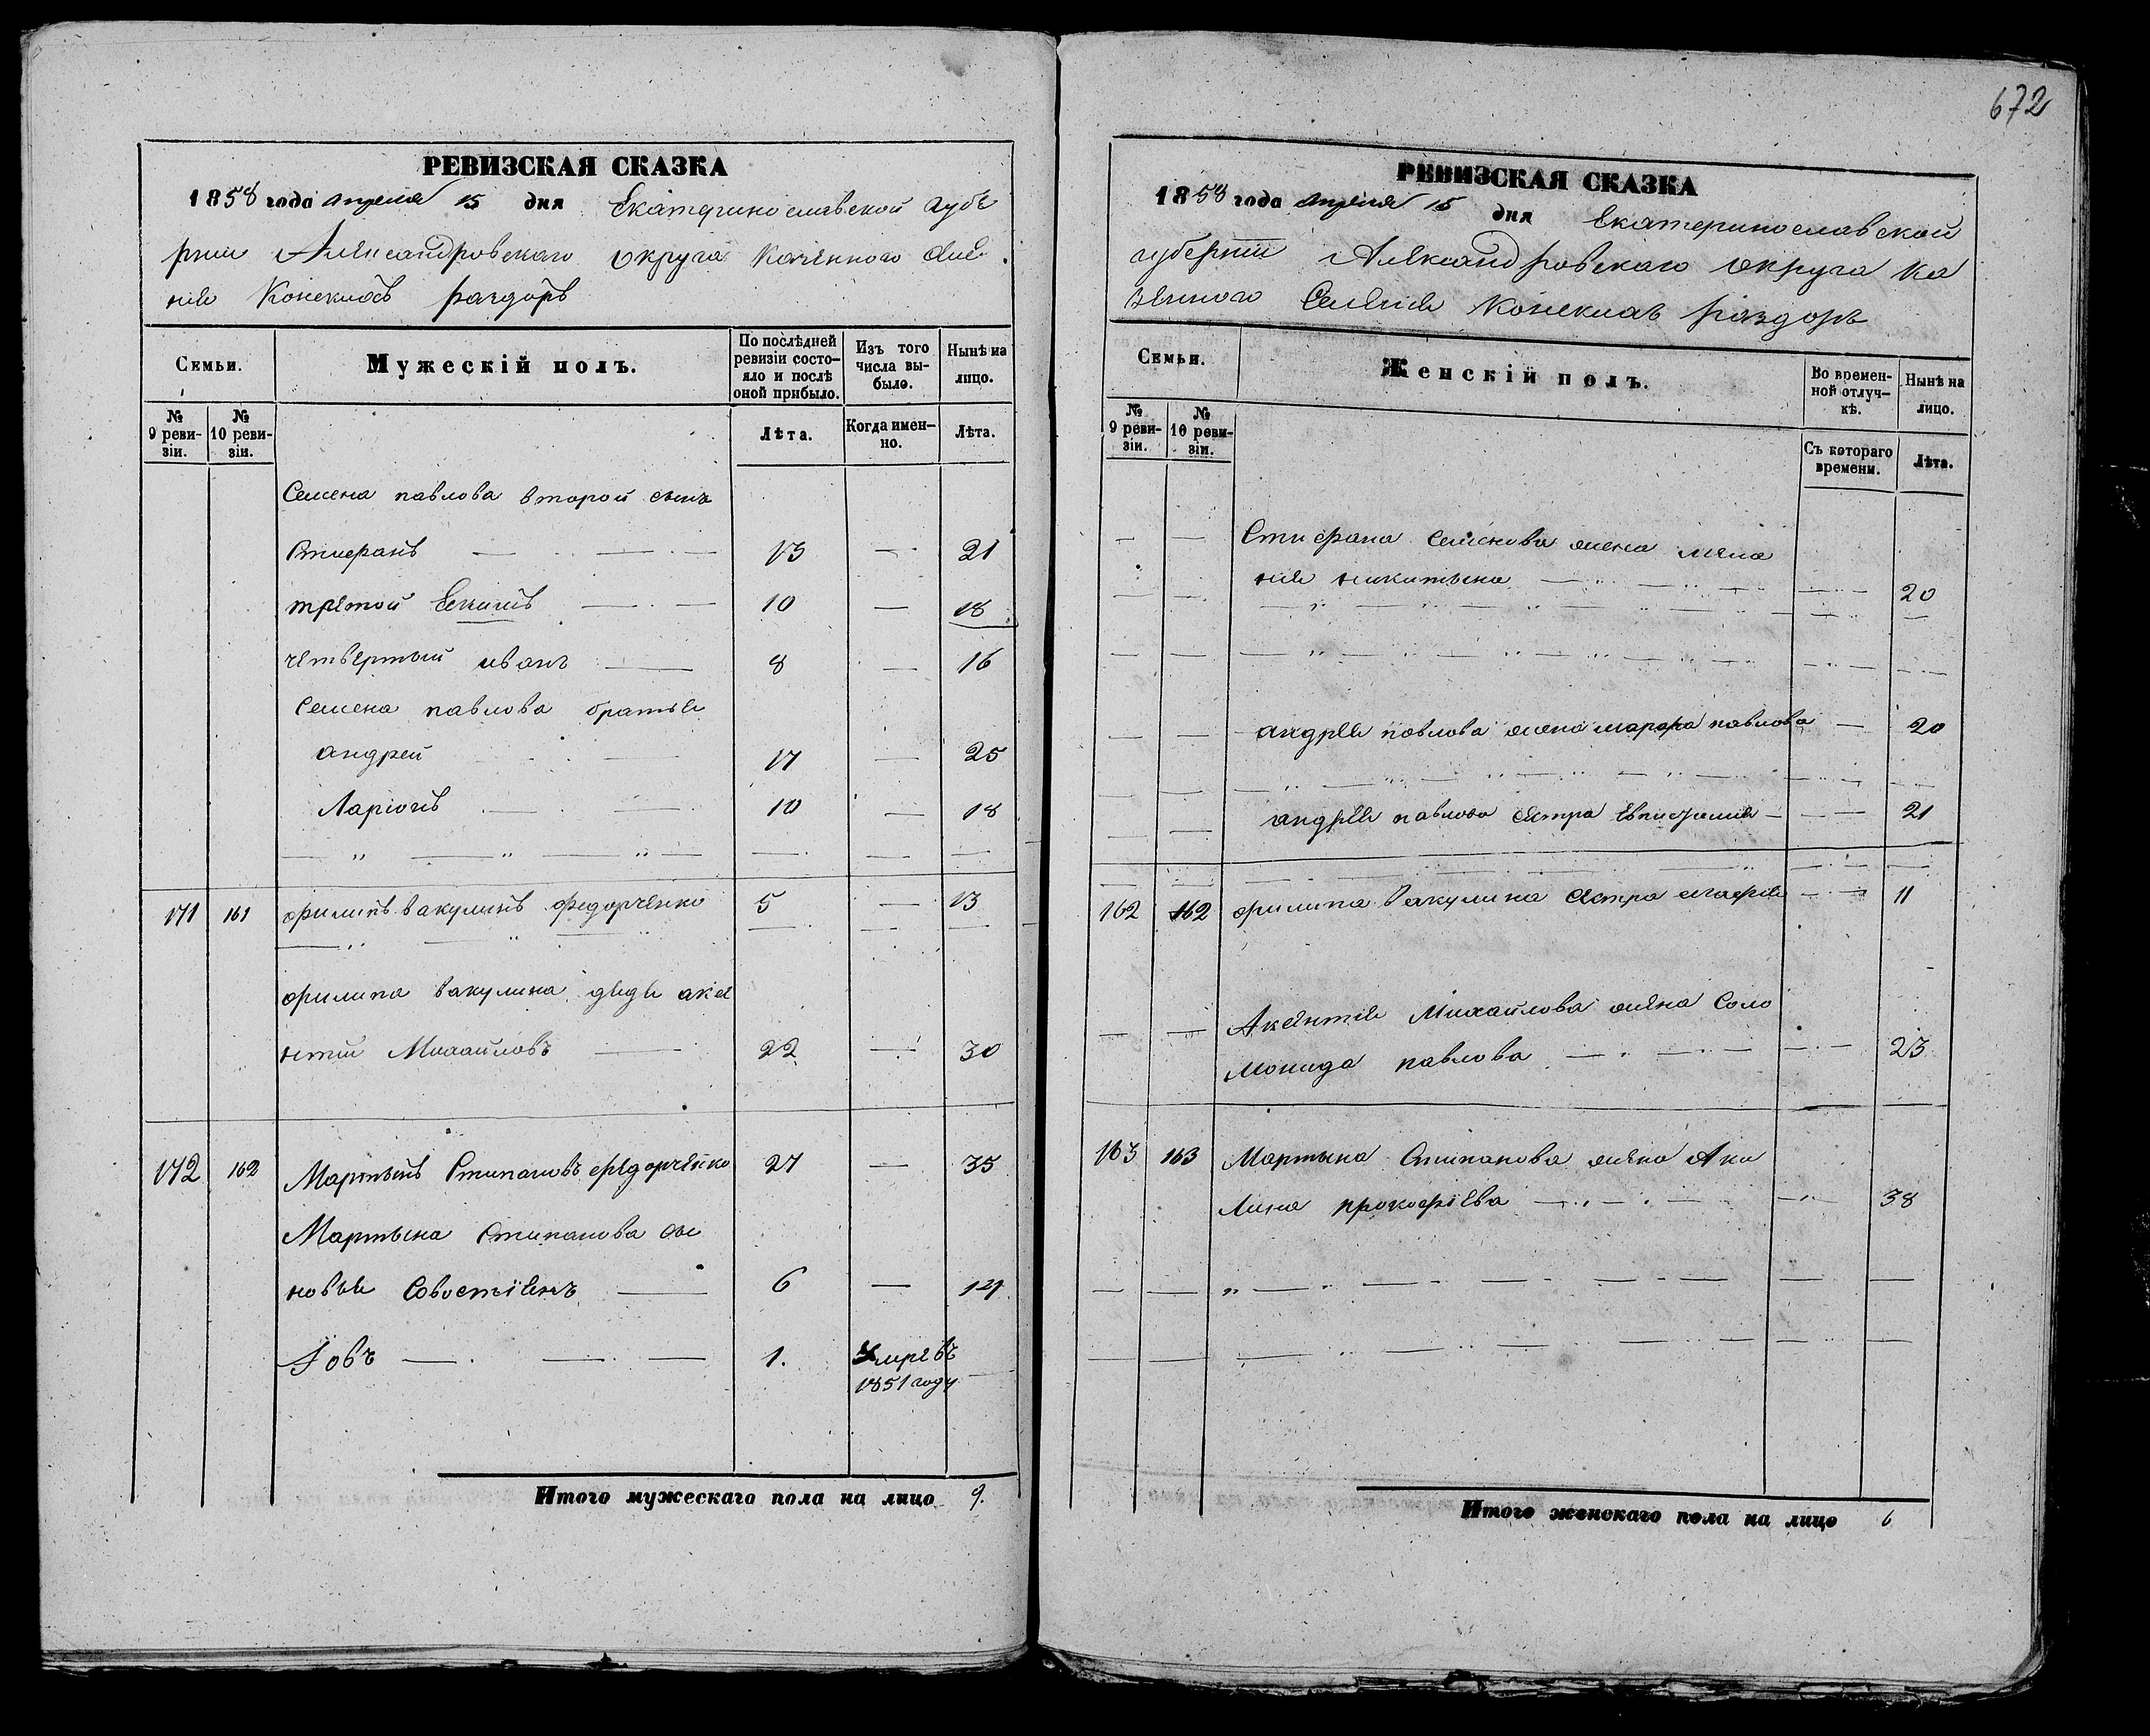 672
РЕВИЗСКАЯ СКАЗКА
1858 года апреля 15 дня Екатеринославской губе
рнии Александровскаго округа казенного Селе
ния Конскихъ раздоръ
Семьи.
Мужескій полъ.
По послѣдней ревизіи состо-
яло и послѣ оной прибыло.
Изъ того числа вы-
было.
Нынѣ на лицо.
№ 9 реви-
зіи.
№ 10 реви-
зіи.
Лѣта.
Когда имен-
но.
Лѣта.
Семена павлова второй сынъ
Стиефанъ — 13 — 21
третой Екимъ — 10 — 18
четвертый иванъ — 8 — 16
Семена павлова братья
андрей — 17 — 25
Ларіонъ — 10 — 18
171 161 филипъ вакулинъ федорченко 5 — 13
филипа вакулина дядя аксе
нтий Михайловъ — 22 — 30
172 162 Мартынъ Стипановъ федорченко 27 — 35
Мартына Стипанова сы
новья Совостіенъ — 6 — 14
Іовъ — 1. умре въ
1851 году
Итого мужескаго пола на лицо 9.
РЕВИЗСКАЯ СКАЗКА
1858 года апреля 15 дня Екатеринославской
губернии Александровскаго округа ка
зенного Селения Конскихъ раздоръ
Семьи.
Женскій полъ.
Во времен-
ной отлуч-
кѣ.
Нынѣ на лицо.
№ 9 реви-
зіи.
№ 10 реви-
зіи.
Съ котораго времени.
Лѣта.
Стиефана Семенова жена мела
ния никитына — 20
андрея павлова жена марфа павлова — 20
андрея павлова сестра Евпифания — 21
162 162 филипа вакулина сестра агафия — 11
Аксентия Михайлова жена Соло
монида павлова — 23
163 163 Мартына Стипанова жена Аку
лина прокофіева — 38
Итого женскаго пола на лицо 6